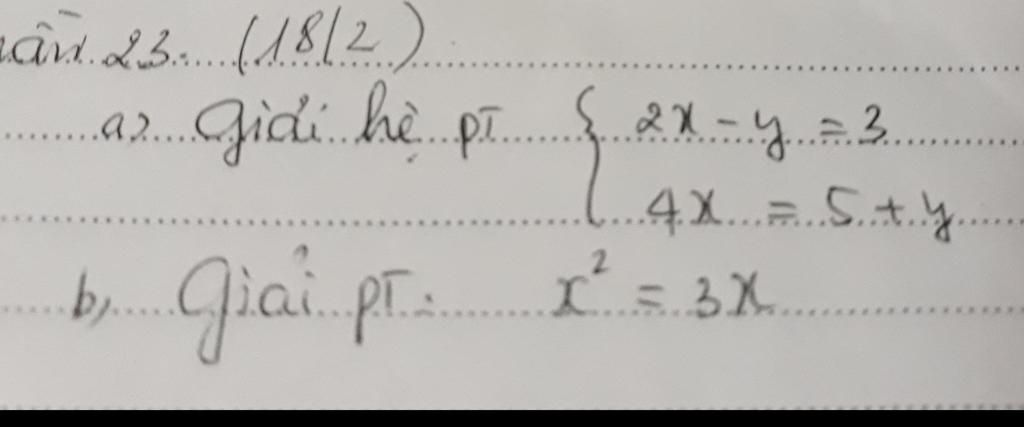 23. (18/2)
a, Giải hệ pT { 2x - y = 3
4x = 5 + y
b, Giải pT: x² = 3x